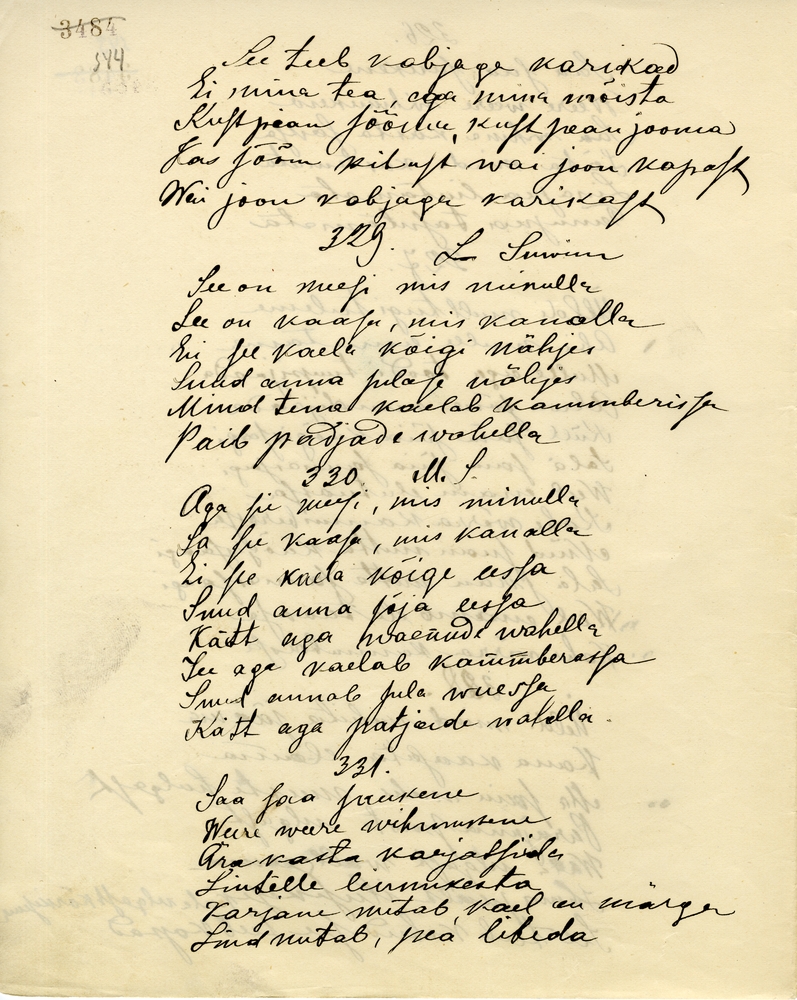 3484
544
See teeb kabjaga karikad
Ei mina tea, ega mina mõista
Kust pean sööma, kust pean jooma
Kas söön kibust wai joon kapast
Wai joon kabjaga karikast
329. L Suwinu
See on meesi mis minulla
See on kaasa, mis kanalla
Ei se kaela kõigi nähjes
Suud anna sulase nähjes
Mind tema kaelab kammberissa
Paib padjade wahella
330. M. S.
Aga se meesi, mis minulla
Sa se kaasa, mis kanalla
Ei se kaela kõige eessa
Suud anna sõja eessa
Kätt aga waenude wahella
See aga kaelab kammberassa
Suud annab sula wuessa
Kätt aga patjade wahella.
331.
Saa saa saukene
Weere weere wihmukene
Ära kasta karjatsida
Lintelle linnukesta
Karjane nutab, kael on märga
Lind nutab, pea libeda